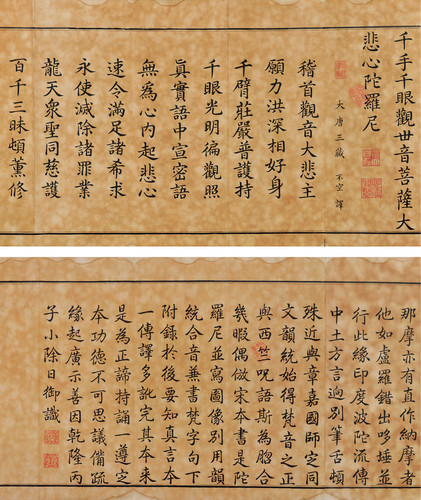 千手千眼觀世音菩薩大
悲心陀羅尼
大唐三藏 不空 譯
稽首觀音大悲主
願力洪深相好身
千臂莊嚴普護持
千眼光明徧觀照
真實語中宣密語
無為心內起悲心
速令滿足諸希求
永使滅除諸罪業
龍天衆聖同慈護
百千三昧頓薰修
那摩亦有直作納摩者
他如虛羅錯出哆埵並
行此緣印度波陀流傳
中土方言逈別筆舌頓
殊近與章嘉國師定同
文韻統始得梵音之正
與西竺呪語斯為脗合
幾暇偶倣宋本書是陀
羅尼並寫圖像別用韻
統合音兼書梵字句下
附錄於後要知真言本
一傳譯多訛完其本來
是為正諦持誦一遵之
夲功德不可思議備疏
緣起廣示善因乾隆丙
子小除日御識